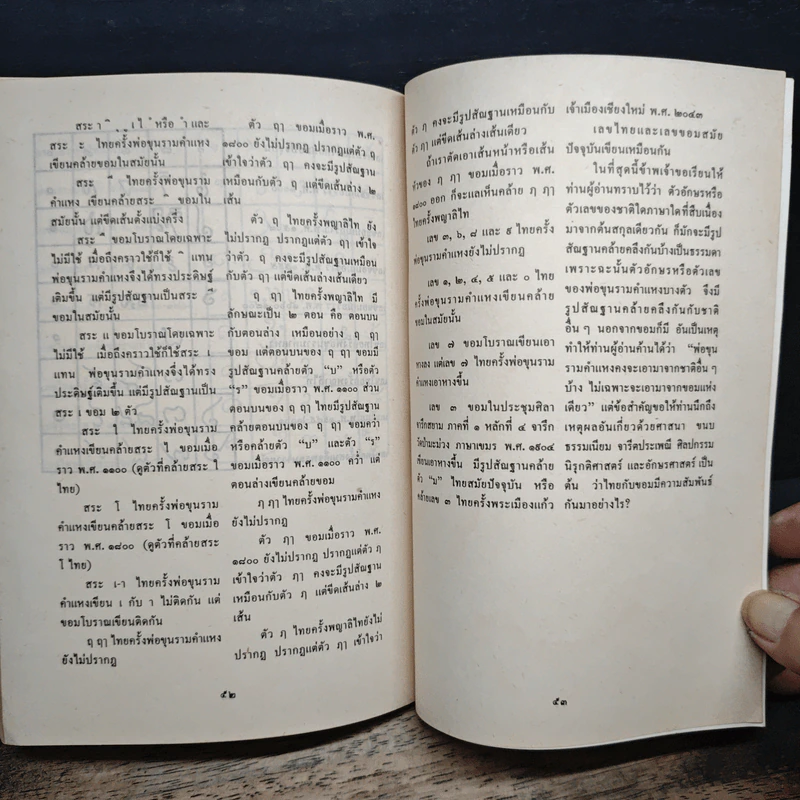 สระ า ิ เ ไ หรือ ำ และ
สระ ะ ไทยครั้งพ่อขุนรามคำแหง
เขียนคล้ายขอมในสมัยนั้น
สระ ี ไทยครั้งพ่อขุนราม
คำแหง เขียนคล้ายสระ ิ ขอมใน
สมัยนั้น แต่ขีดเส้นตั้งแบ่งครึ่ง
สระ ื ขอมโบราณโดยเฉพาะ
ไม่มีใช้ เมื่อถึงคราวใช้ก็ใช้ ิ แทน
พ่อขุนรามคำแหงจึงได้ทรงประดิษฐ์
เติมขึ้น แต่มีรูปสัณฐานเป็นสระ ี
ขอมในสมัยนั้น
สระ แ ขอมโบราณโดยเฉพาะ
ไม่มีใช้ เมื่อถึงคราวใช้ก็ใช้สระ เ
แทน พ่อขุนรามคำแหงจึงได้ทรง
ประดิษฐ์เติมขึ้น แต่มีรูปสัณฐานเป็น
สระ เ ขอม ๒ ตัว
สระ ใ ไทยครั้งพ่อขุนราม
คำแหงเขียนคล้ายสระ ใ ขอมเมื่อ
ราว พ.ศ. ๑๑๐๐ (ดูตัวที่คล้ายสระ ใ
ไทย)
สระ โ ไทยครั้งพ่อขุนราม
คำแหงเขียนคล้ายสระ โ ขอมเมื่อ
ราว พ.ศ. ๑๘๐๐ (ดูตัวที่คล้ายสระ
โ ไทย)
สระ เ-า ไทยครั้งพ่อขุนราม
คำแหงเขียน เ กับ า ไม่ติดกัน แต่
ขอมโบราณเขียนติดกัน
ฤ ฤๅ ไทยครั้งพ่อขุนรามคำแหง
ยังไม่ปรากฏ
ตัว ฤๅ ขอมเมื่อราว พ.ศ.
๑๘๐๐ ยังไม่ปรากฏ ปรากฏแต่ตัว ฤ
เข้าใจว่าตัว ฤๅ คงจะมีรูปสัณฐาน
เหมือนกับตัว ฤ แต่ขีดเส้นล่าง ๒
เส้น
ตัว ฤ ไทยครั้งพญาลิไท ยัง
ไม่ปรากฏ ปรากฏแต่ตัว ฤๅ เข้าใจ
ว่าตัว ฤ คงจะมีรูปสัณฐานเหมือน
กับตัว ฤๅ แต่ขีดเส้นล่างเส้นเดียว
ฤ ฤๅ ไทยครั้งพญาลิไท มี
ลักษณะเป็น ๒ ตอน คือ ตอนบน
กับตอนล่าง เหมือนอย่าง ฤ ฤๅ
ขอม แต่ตอนบนของ ฤ ฤๅ ขอมมี
รูปสัณฐานคล้ายตัว "บ" หรือตัว
"ร" ขอมเมื่อราว พ.ศ. ๑๑๐๐ ส่วน
ตอนบนของ ฤ ฤๅ ไทยมีรูปสัณฐาน
คล้ายตอนบนของ ฤ ฤๅ ขอมคว่ำ
หรือคล้ายตัว "บ" และตัว "ร"
ขอมเมื่อราว พ.ศ. ๑๑๐๐ คว่ำ แต่
ตอนล่างเขียนคล้ายขอม
ฦ ฦๅ ไทยครั้งพ่อขุนรามคำแหง
ยังไม่ปรากฏ
ตัว ฦๅ ขอมเมื่อราว พ.ศ.
๑๘๐๐ ยังไม่ปรากฏ ปรากฏแต่ตัว ฦ
เข้าใจว่าตัว ฦๅ คงจะมีรูปสัณฐาน
เหมือนกับตัว ฦ แต่ขีดเส้นล่าง ๒
เส้น
ตัว ฦ ไทยครั้งพญาลิไทยังไม่
ปรากฏ ปรากฏแต่ตัว ฦๅ เข้าใจว่า
๕๒
ตัว ฦ คงจะมีรูปสัณฐานเหมือนกับ
ตัว ฦๅ แต่ขีดเส้นล่างเส้นเดียว
ถ้าเราตัดเอาเส้นหน้าหรือเส้น
หัวของ ฦ ฦๅ ขอมเมื่อราว พ.ศ.
๑๘๐๐ ออก ก็จะแลเห็นคล้าย ฦ ฦๅ
ไทยครั้งพญาลิไท
เลข ๓, ๖, ๘ และ ๙ ไทยครั้ง
พ่อขุนรามคำแหงยังไม่ปรากฏ
เลข ๑, ๒, ๔, ๕ และ ๐ ไทย
ครั้งพ่อขุนรามคำแหงเขียนคล้าย
ขอมในสมัยนั้น
เลข ๗ ขอมโบราณเขียนเอา
หางลง แต่เลข ๗ ไทยครั้งพ่อขุนราม
คำแหงเอาหางขึ้น
เลข ๓ ขอมในประชุมศิลา
จารึกสยาม ภาคที่ ๑ หลักที่ ๔ จารึก
วัดป่ามะม่วง ภาษาเขมร พ.ศ. ๑๙๐๔
เขียนเอาหางขึ้น มีรูปสัณฐานคล้าย
ตัว "ม" ไทยสมัยปัจจุบัน หรือ
คล้ายเลข ๓ ไทยครั้งพระเมืองแก้ว
เจ้าเมืองเชียงใหม่ พ.ศ. ๒๐๔๓
เลขไทยและเลขขอมสมัย
ปัจจุบันเขียนเหมือนกัน
ในที่สุดนี้ข้าพเจ้าขอเรียนให้
ท่านผู้อ่านทราบไว้ว่า ตัวอักษรหรือ
ตัวเลขของชาติใดภาษาใดที่สืบเนื่อง
มาจากต้นสกุลเดียวกัน ก็มักจะมีรูป
สัณฐานคล้ายคลึงกันบ้างเป็นธรรมดา
เพราะฉะนั้นตัวอักษรหรือตัวเลข
ของพ่อขุนรามคำแหงบางตัว จึงมี
รูปสัณฐานคล้ายคลึงกันกับชาติ
อื่น ๆ นอกจากขอมก็มี อันเป็นเหตุ
ทำให้ท่านผู้อ่านค้านได้ว่า "พ่อขุน
รามคำแหงคงจะเอามาจากชาติอื่น ๆ
บ้าง ไม่เฉพาะจะเอามาจากขอมแห่ง
เดียว" แต่ข้อสำคัญขอให้ท่านนึกถึง
เหตุผลอันเกี่ยวด้วยศาสนา ขนบ
ธรรมเนียม จารีตประเพณี ศิลปกรรม
นิรุกติศาสตร์ และอักษรศาสตร์ เป็น
ต้น ว่าไทยกับขอมมีความสัมพันธ์
กันมาอย่างไร?
๕๓